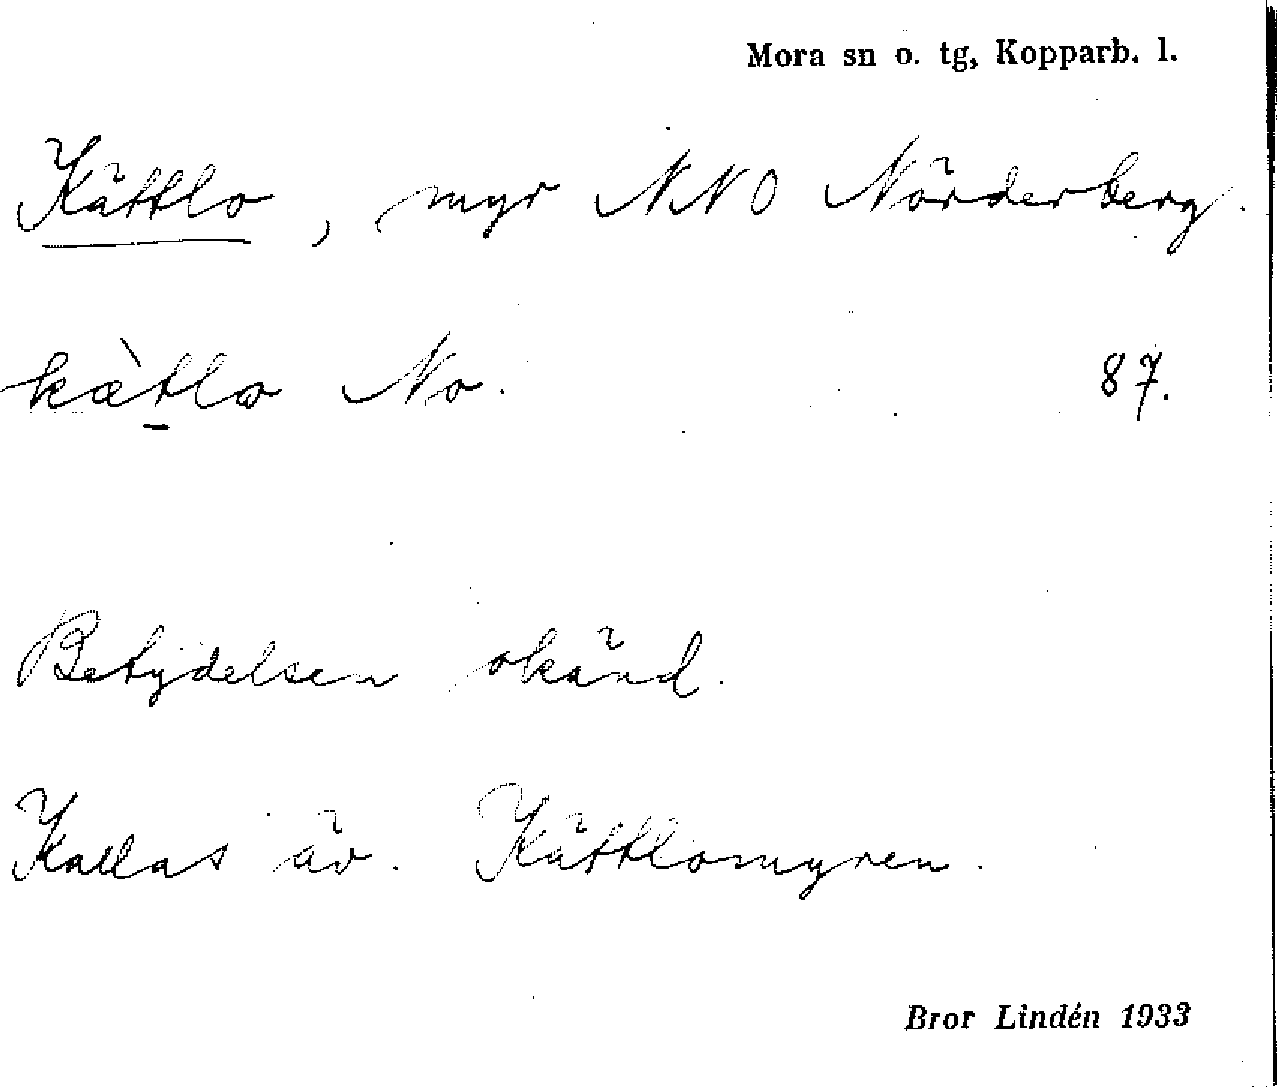 Mora sn o. tg, Kopparb. l.
Kättlo, myr NNO Nörderberg.
kæ̀tlo No. 87.
Betydelsen okänd.
Kallas äv. Kättlomyren.
Bror Lindén 1933